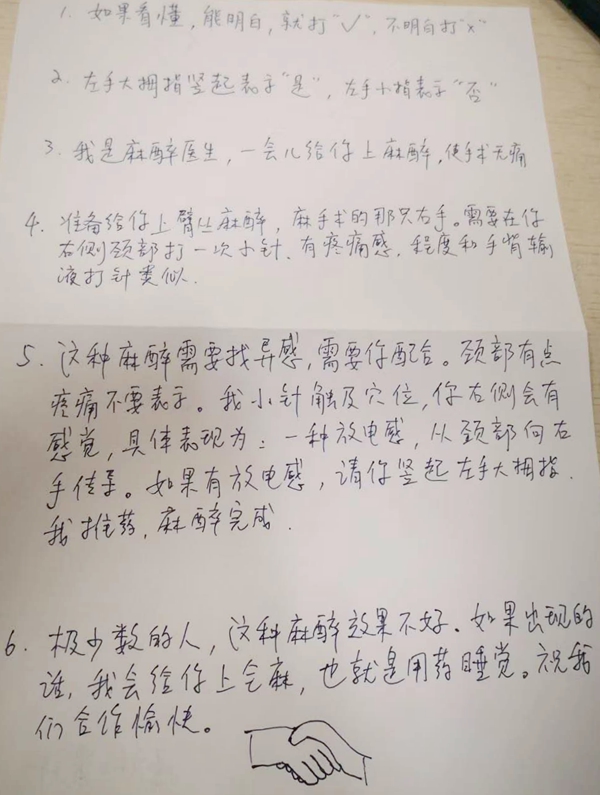 1. 如果看懂，能明白，就打"√"，不明白打"×"
2. 左手大拇指竖起表示"是"，左手小指表示"否"
3. 我是麻醉医生，一会儿给你上麻醉，使手术无痛
4. 准备给你上臂丛麻醉，麻手术的那只右手。需要在你
右侧颈部打一次小针、有疼痛感，程度和手背输
液打针类似.
5. 这种麻醉需要找异感，需要你配合。颈部有点
疼痛不要表示。我小针触及穴位，你右侧会有
感觉，具体表现为：一种放电感，从颈部向右
手传导。如果有放电感，请你竖起左手大拇指.
我推药，麻醉完成.
6. 极少数的人，这种麻醉效果不好. 如果出现的
谁，我会给你上全麻，也就是用药睡觉。祝我
们合作愉快。